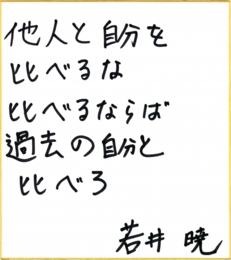 他人と自分を
比べるな
比べるならば
過去の自分と
比べろ
若井 暁